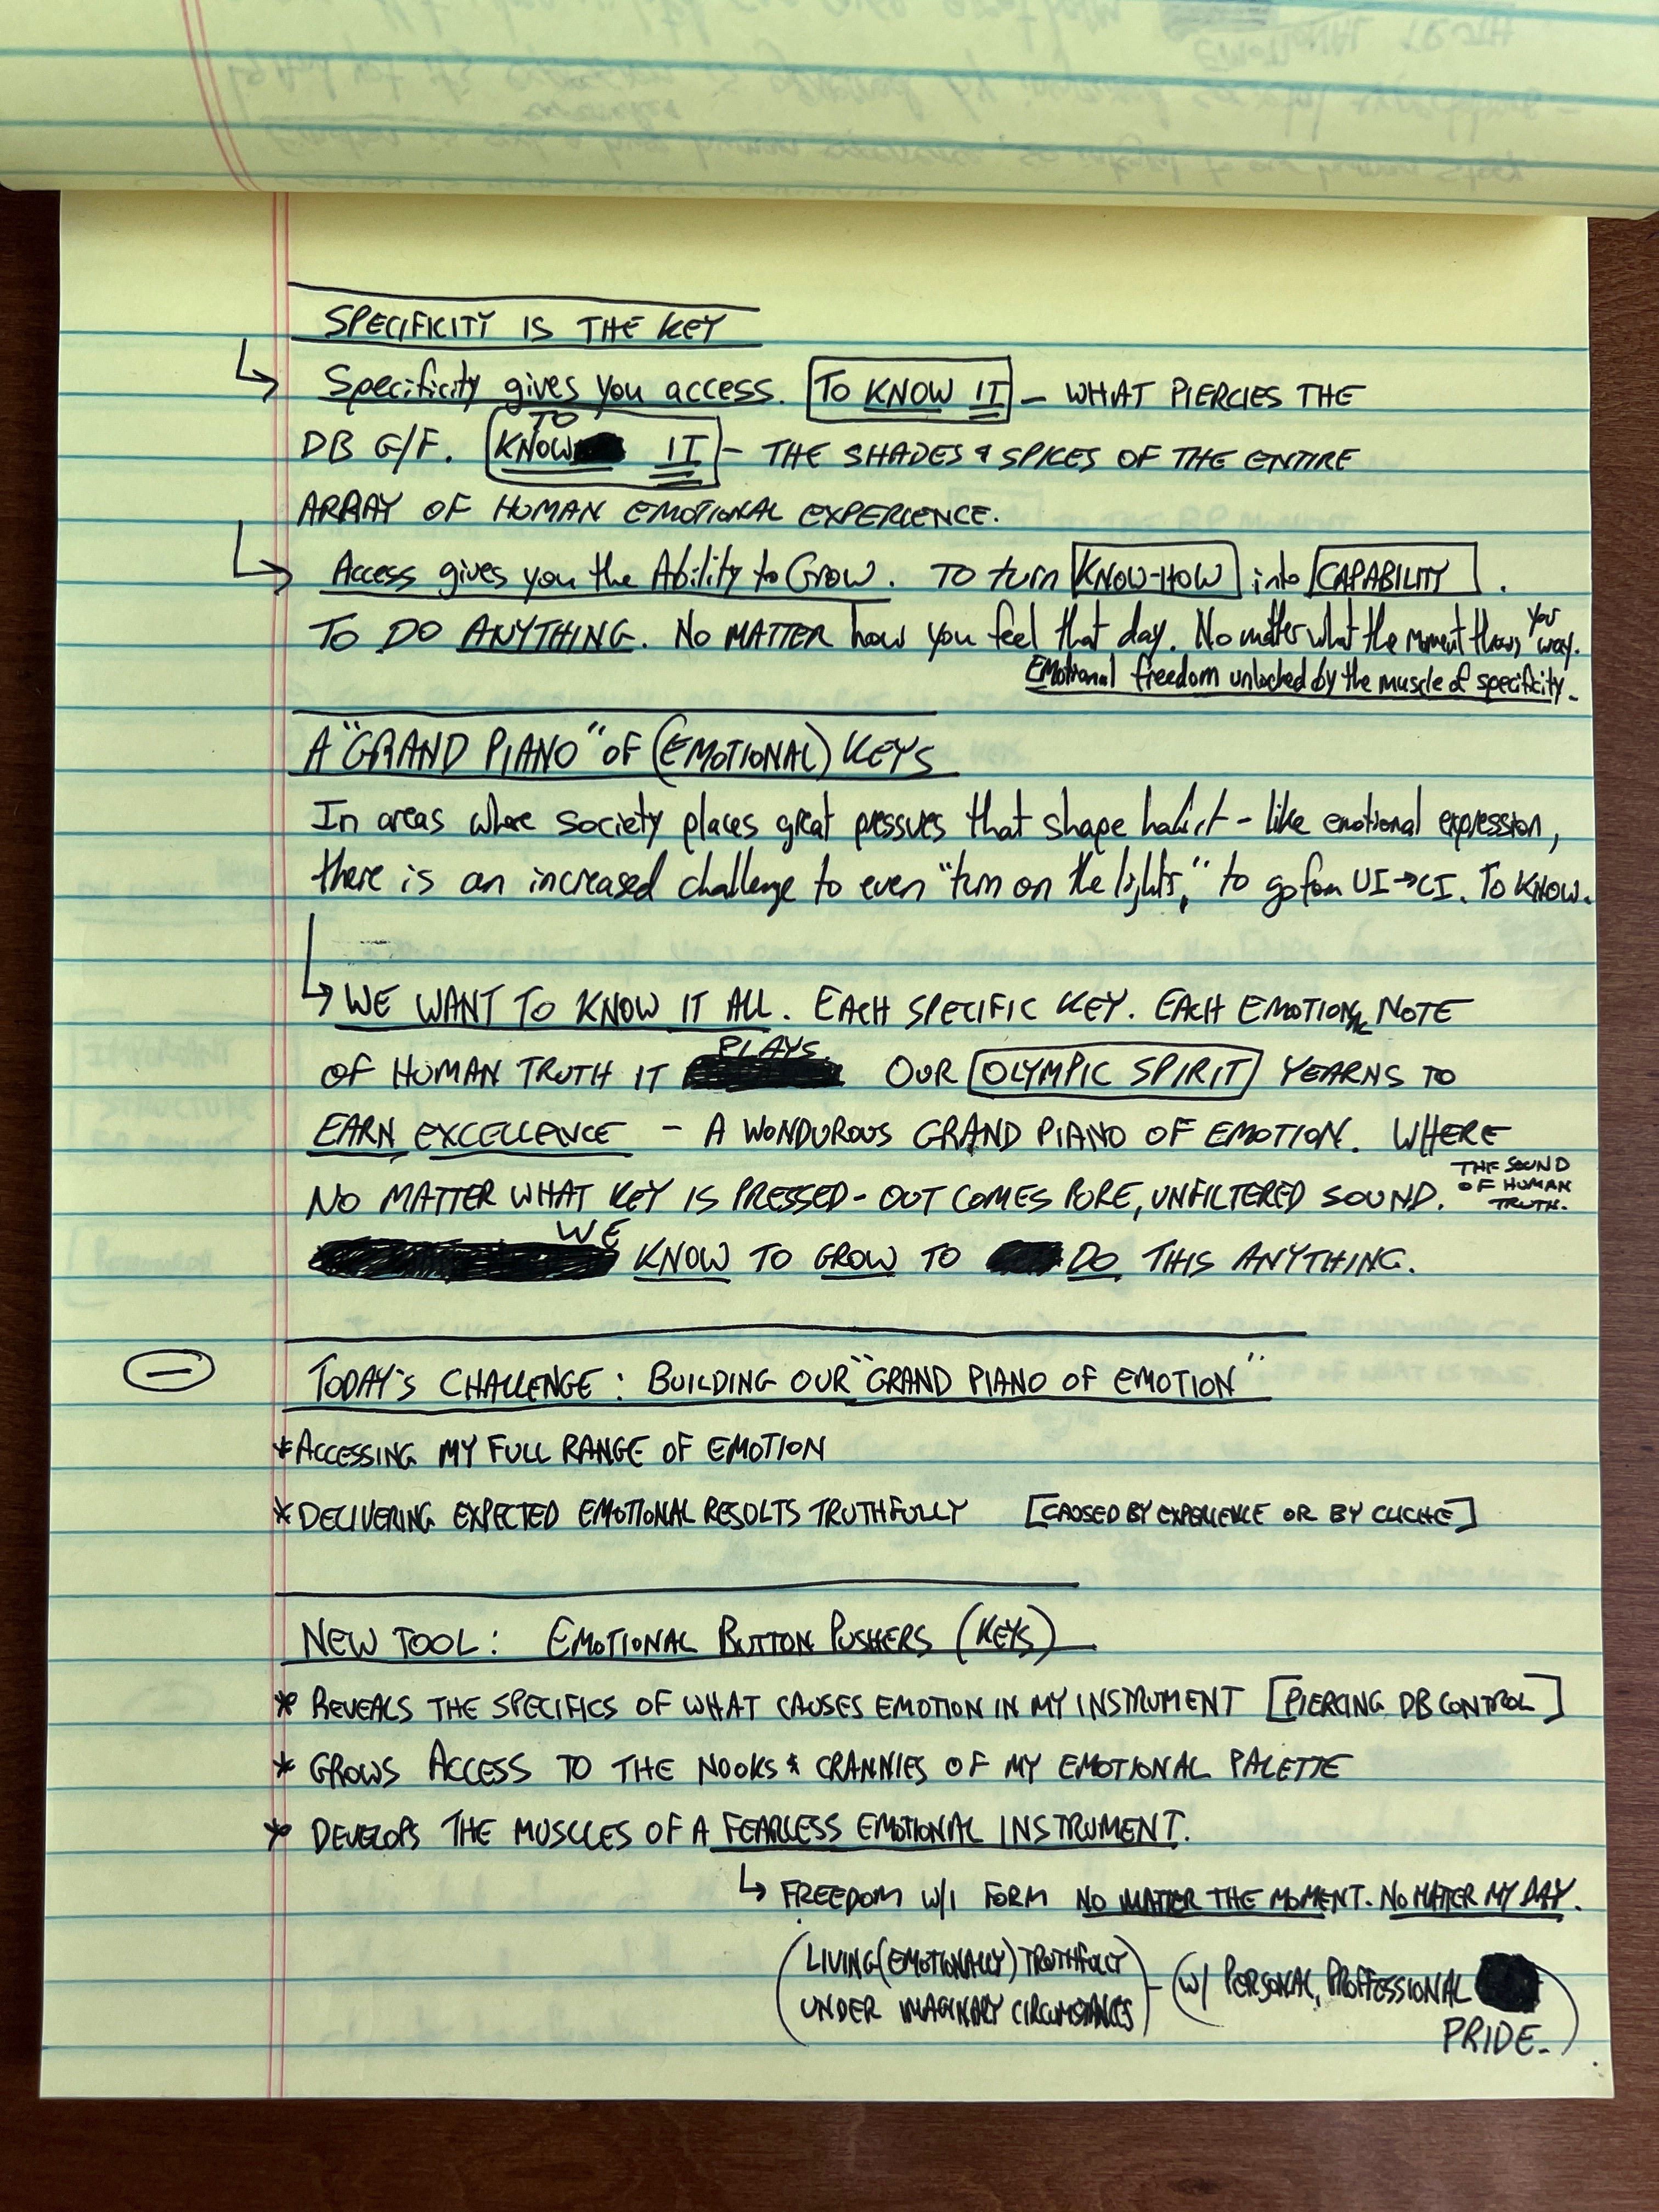 SPECIFICITY IS THE KEY
↳ Specificity gives you access. TO KNOW IT - WHAT PIERCIES THE
DB G/F. TO KNOW IT - THE SHADES & SPICES OF THE ENTIRE
ARRAY OF HUMAN EMOTIONAL EXPERIENCE.
↳ Access gives you the Ability to Grow. To turn KNOW-HOW into CAPABILITY.
TO DO ANYTHING. NO MATTER how you feel that day. No matter what the moment throws you way.
Emotional freedom unlocked by the muscle of specificity.
A "GRAND PIANO" OF (EMOTIONAL) KEYS
In areas where society places great pressures that shape habit - like emotional expression,
there is an increased challenge to even "turn on the lights," to go from UI→CI. TO KNOW.
↳ WE WANT TO KNOW IT ALL. EACH SPECIFIC KEY. EACH EMOTIONAL NOTE
OF HUMAN TRUTH IT PLAYS. OUR OLYMPIC SPIRIT YEARNS TO
EARN EXCELLENCE - A WONDUROUS GRAND PIANO OF EMOTION. WHERE
NO MATTER WHAT KEY IS PRESSED - OUT COMES PURE, UNFILTERED SOUND. THE SOUND OF HUMAN TRUTH.
WE KNOW TO GROW TO DO THIS ANYTHING.
TODAY'S CHALLENGE: BUILDING OUR "GRAND PIANO OF EMOTION"
* ACCESSING MY FULL RANGE OF EMOTION
* DELIVERING EXPECTED EMOTIONAL RESULTS TRUTHFULLY [CAUSED BY EXPERIENCE OR BY CLICHE]
NEW TOOL: EMOTIONAL BUTTON PUSHERS (KEYS)
* REVEALS THE SPECIFICS OF WHAT CAUSES EMOTION IN MY INSTRUMENT [PIERCING DB CONTROL]
* GROWS ACCESS TO THE NOOKS & CRANNIES OF MY EMOTIONAL PALETTE
* DEVELOPS THE MUSCLES OF A FEARLESS EMOTIONAL INSTRUMENT.
↳ FREEDOM W/I FORM NO MATTER THE MOMENT. NO MATTER MY DAY.
(LIVING (EMOTIONALLY) TRUTHFULLY UNDER IMAGINARY CIRCUMSTANCES) - (W/ PERSONAL, PROFFESSIONAL PRIDE.)